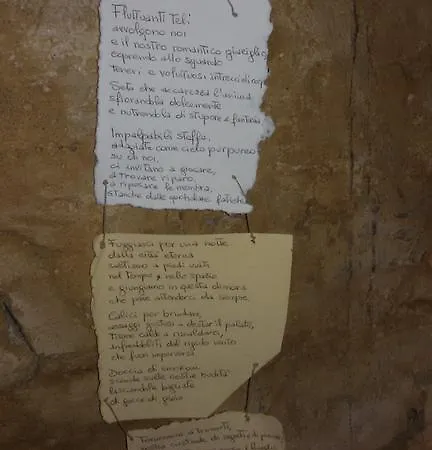 Fluttuanti teli
avvolgono noi
e il nostro romantico giaciglio
coprendo allo sguardo
teneri e voluttuosi intrecci di
Seta che accarezza l'anima
sfiorandola dolcemente
e nutrendola di stupore e fantasia
Impalpabili stoffe,
adagiate come cielo purpureo
su di noi,
ci invitano a giocare,
a trovare riparo,
a riposare le membra,
stanche dalle quotidiane fatiche
Fuggiaschi per una notte
dalla città eterna
saltiamo a piedi uniti
nel Tempo e nello spazio
e giungiamo in questa dimora
che pare attenderci da sempre.
Calici per brindare,
assaggi gustosi a destar il palato,
Tisane calde a riscaldarci,
infreddoliti dal rigido vento
che fuori imperversa
Doccia di emozioni
scende sulle nostre nudità
lasciandole bagnate
di gocce di gioia
Torneremo a trovarti,